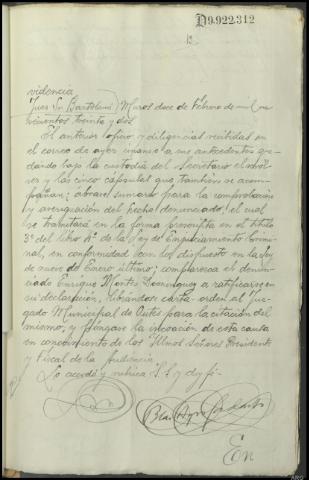 D9.922.312
videncia
Juez Sr. Bartolomé) Muros doce de Febrero de mil no
vecientos treinta y dos
El anterior oficio y diligencias recibidas en
el correo de ayer unanse a sus antecedentes que
dando bajo la custodia del Secretario el
y las cinco cápsulas que también se acom
pañan; ábrase sumario para la comprobación
y averiguación del hecho denunciado, el cual
se tramitará en la forma prescripta en el título
3º del libro 4º de la Ley de Enjuiciamiento Crimi
nal, en conformidad con lo dispuesto en la Ley
de nueve de Enero último; comparezca el denun
ciado Enrique Montes Dominguez a ratificarse en
su declaración, librándose carta-orden al Juz
gado Municipal de Outes para la citación del
mismo, y póngase la incoación de esta causa
en conocimiento de los Iltmos Señores Presidente
y Fiscal de la Audiencia.
Lo acordó y rubrica S.Sª y doy fé.
En